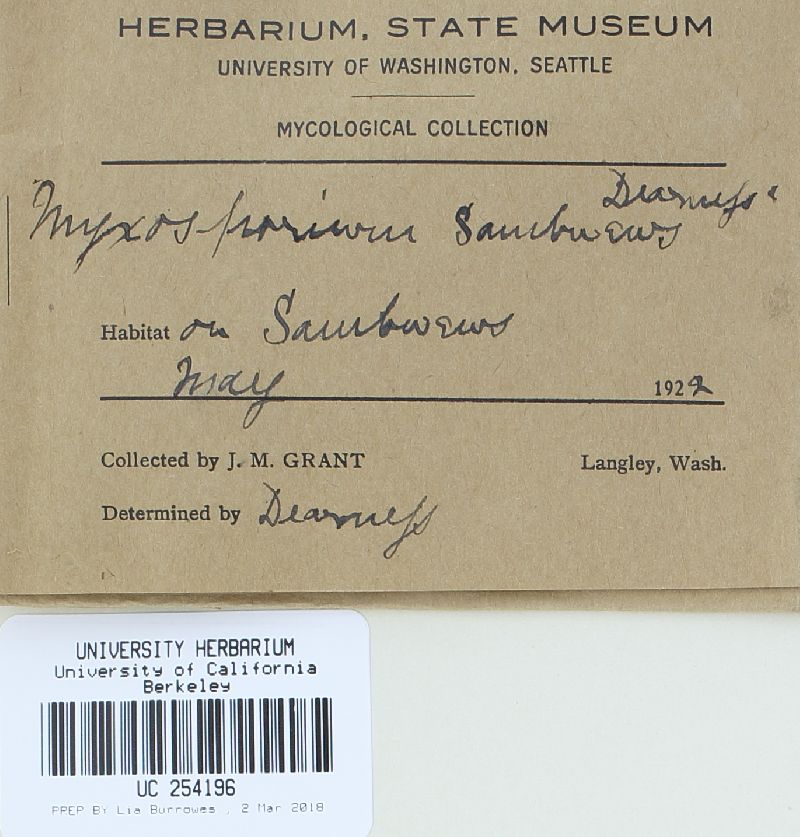 HERBARIUM, STATE MUSEUM
UNIVERSITY OF WASHINGTON, SEATTLE
MYCOLOGICAL COLLECTION
Myxosporium Sambucus Dearness
Habitat on Sambucus
May 1922
Collected by J. M. GRANT Langley, Wash.
Determined by Dearness
UNIVERSITY HERBARIUM
University of California
Berkeley
UC 254196
PREP BY Lia Burrowes , 2 Mar 2018